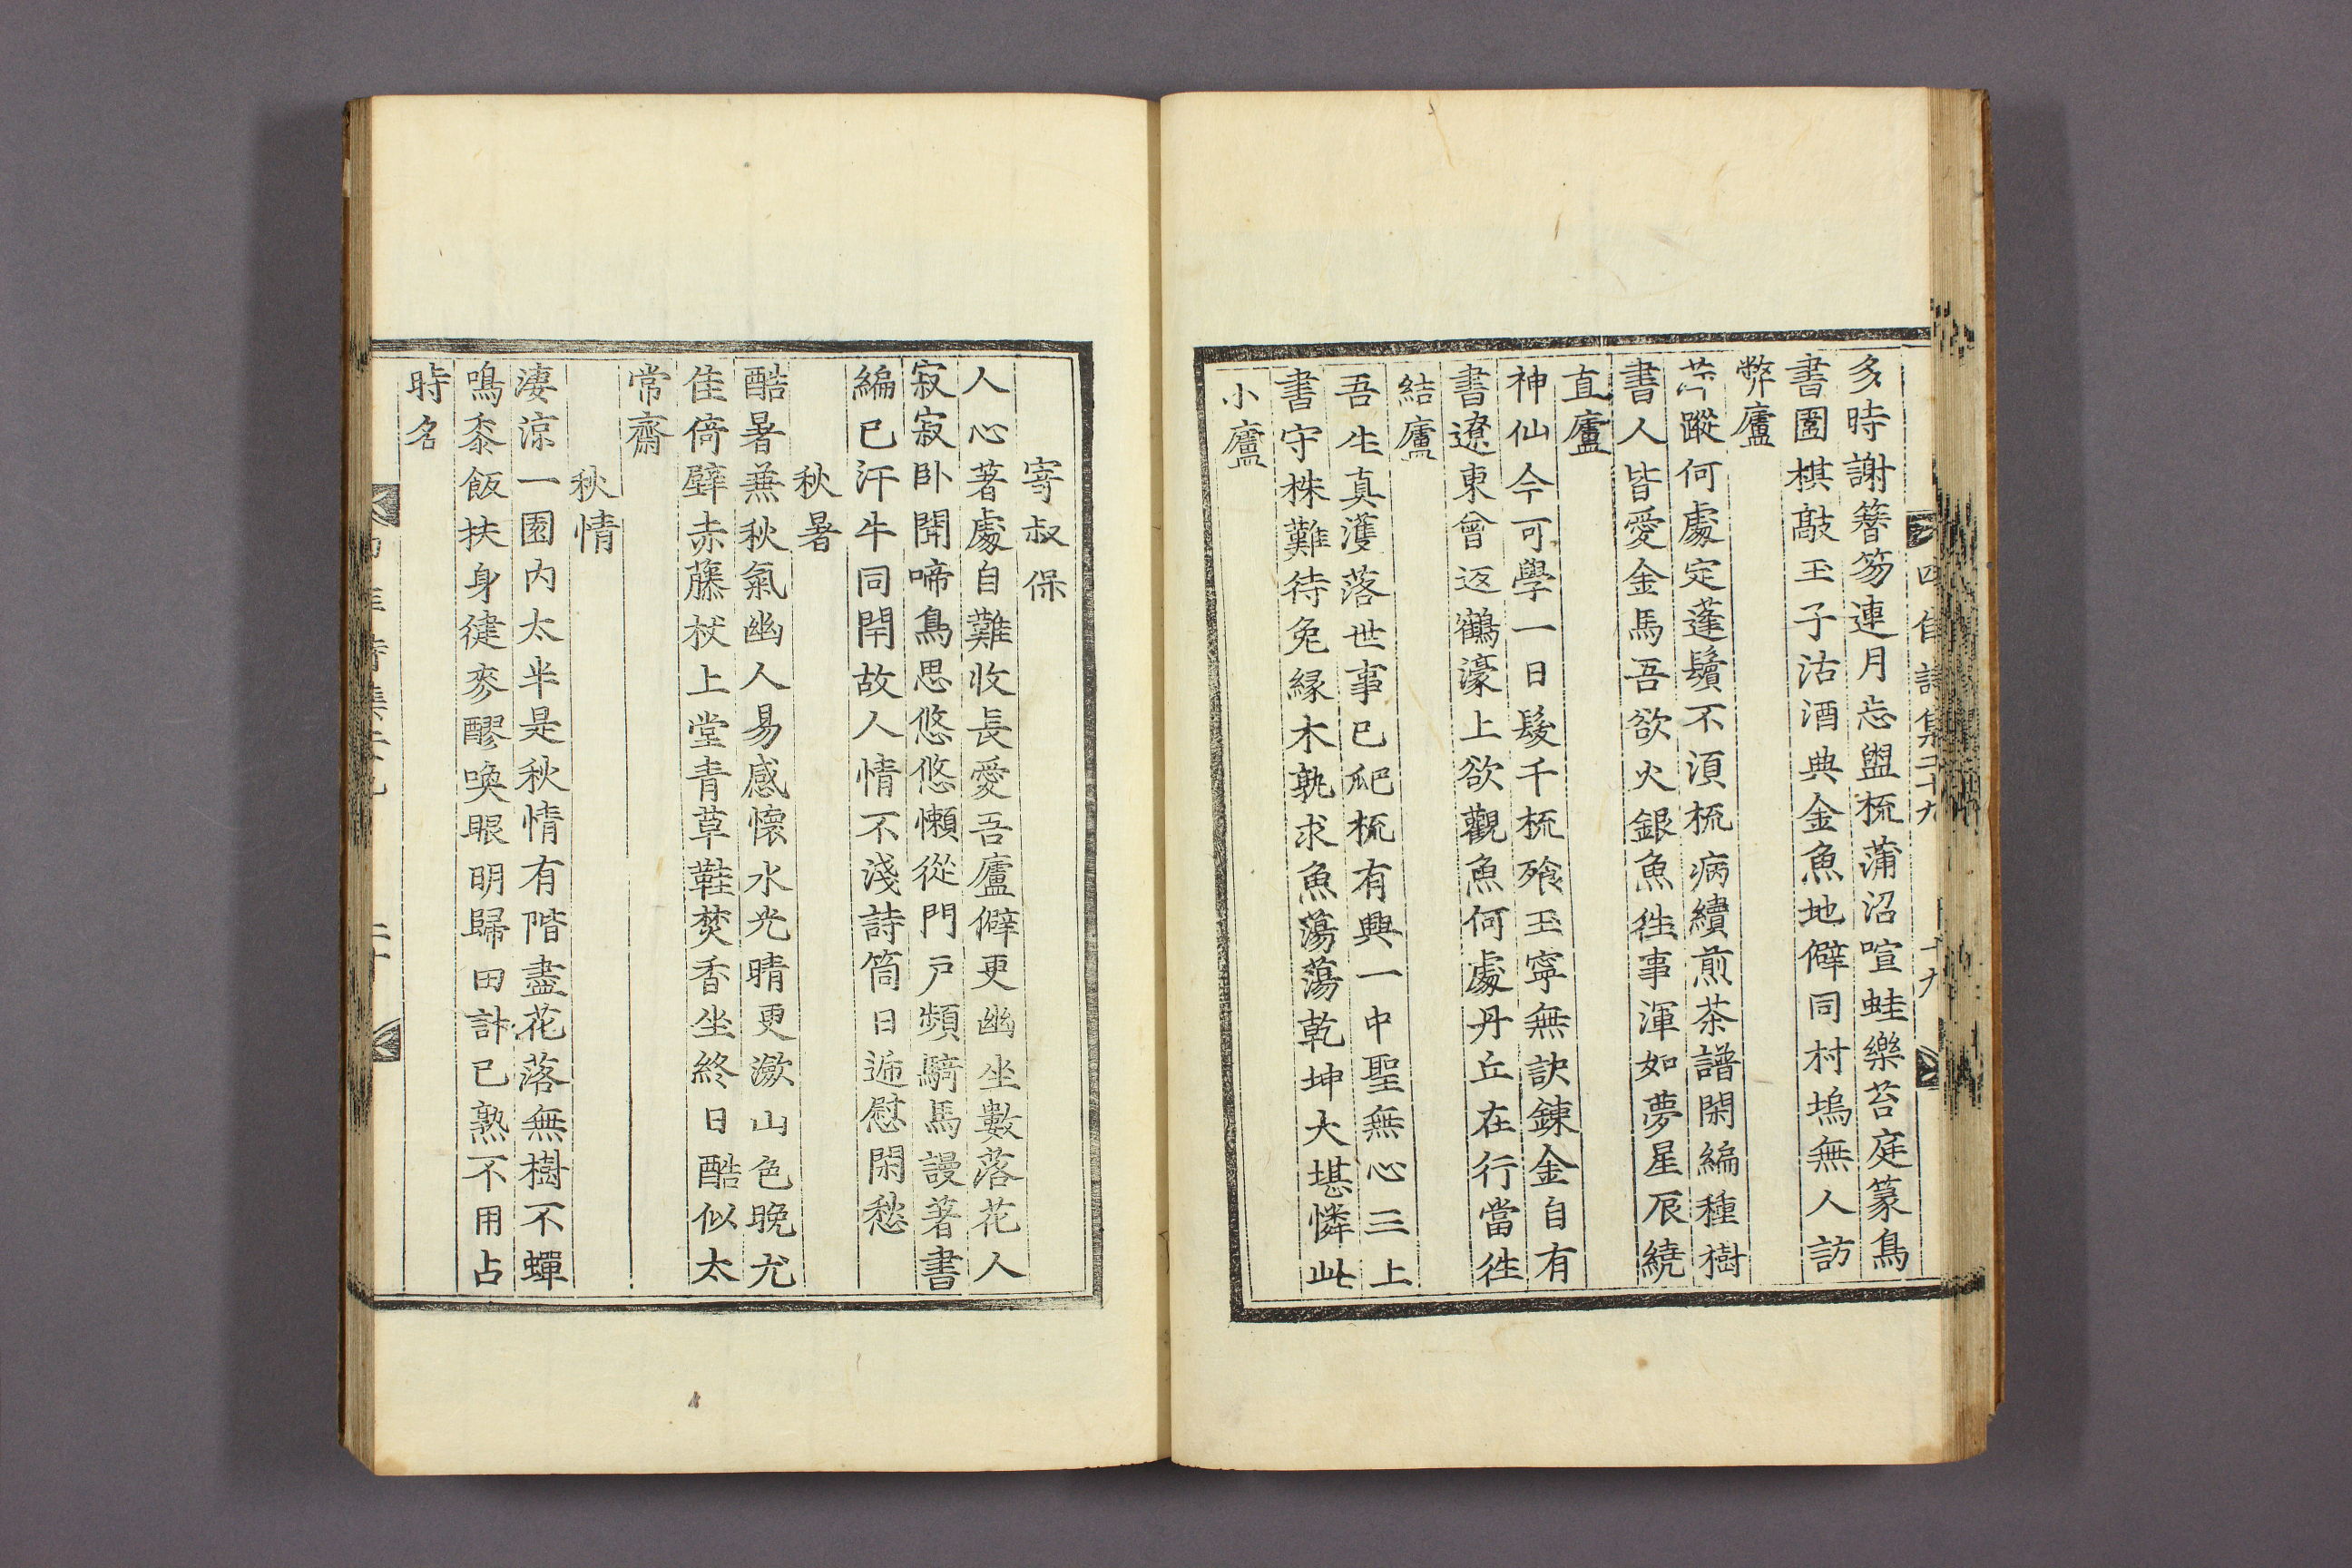 四佳詩集二十九
十九
多時謝簪笏連月忘盥梳蒲沼喧蛙樂苔庭篆鳥
書圍棋敲玉子沽酒典金魚地僻同村塢無人訪
弊廬
蹤何處定蓬鬢不須梳病續煎茶譜閑編種樹
書人皆愛金馬吾欲火銀魚徃事渾如夢星辰繞
直廬
神仙今可學一日髮千梳飱玉寧無訣鍊金自有
書遼東曾返鶴濠上欲觀魚何處丹丘在行當徃
結廬
吾生真濩落世事已爬梳有興一中聖無心三上
書守株難待兔緣木孰求魚蕩蕩乾坤大堪憐此
小廬
寄叔保
人心著處自難收長愛吾廬僻更幽坐數落花人
寂寂卧聞啼鳥思悠悠懶從門戶頻騎馬謾著書
編已汗牛同閈故人情不淺詩筒日遞慰閑愁
秋暑
酷暑兼秋氣幽人易感懷水光晴更瀲山色晚尤
佳倚壁赤藤杖上堂青草鞋焚香坐終日酷似太
常齋
秋情
淒涼一園內太半是秋情有階盡花落無樹不蟬
鳴黍飯扶身健麥醪喚眼明歸田計已熟不用占
時名